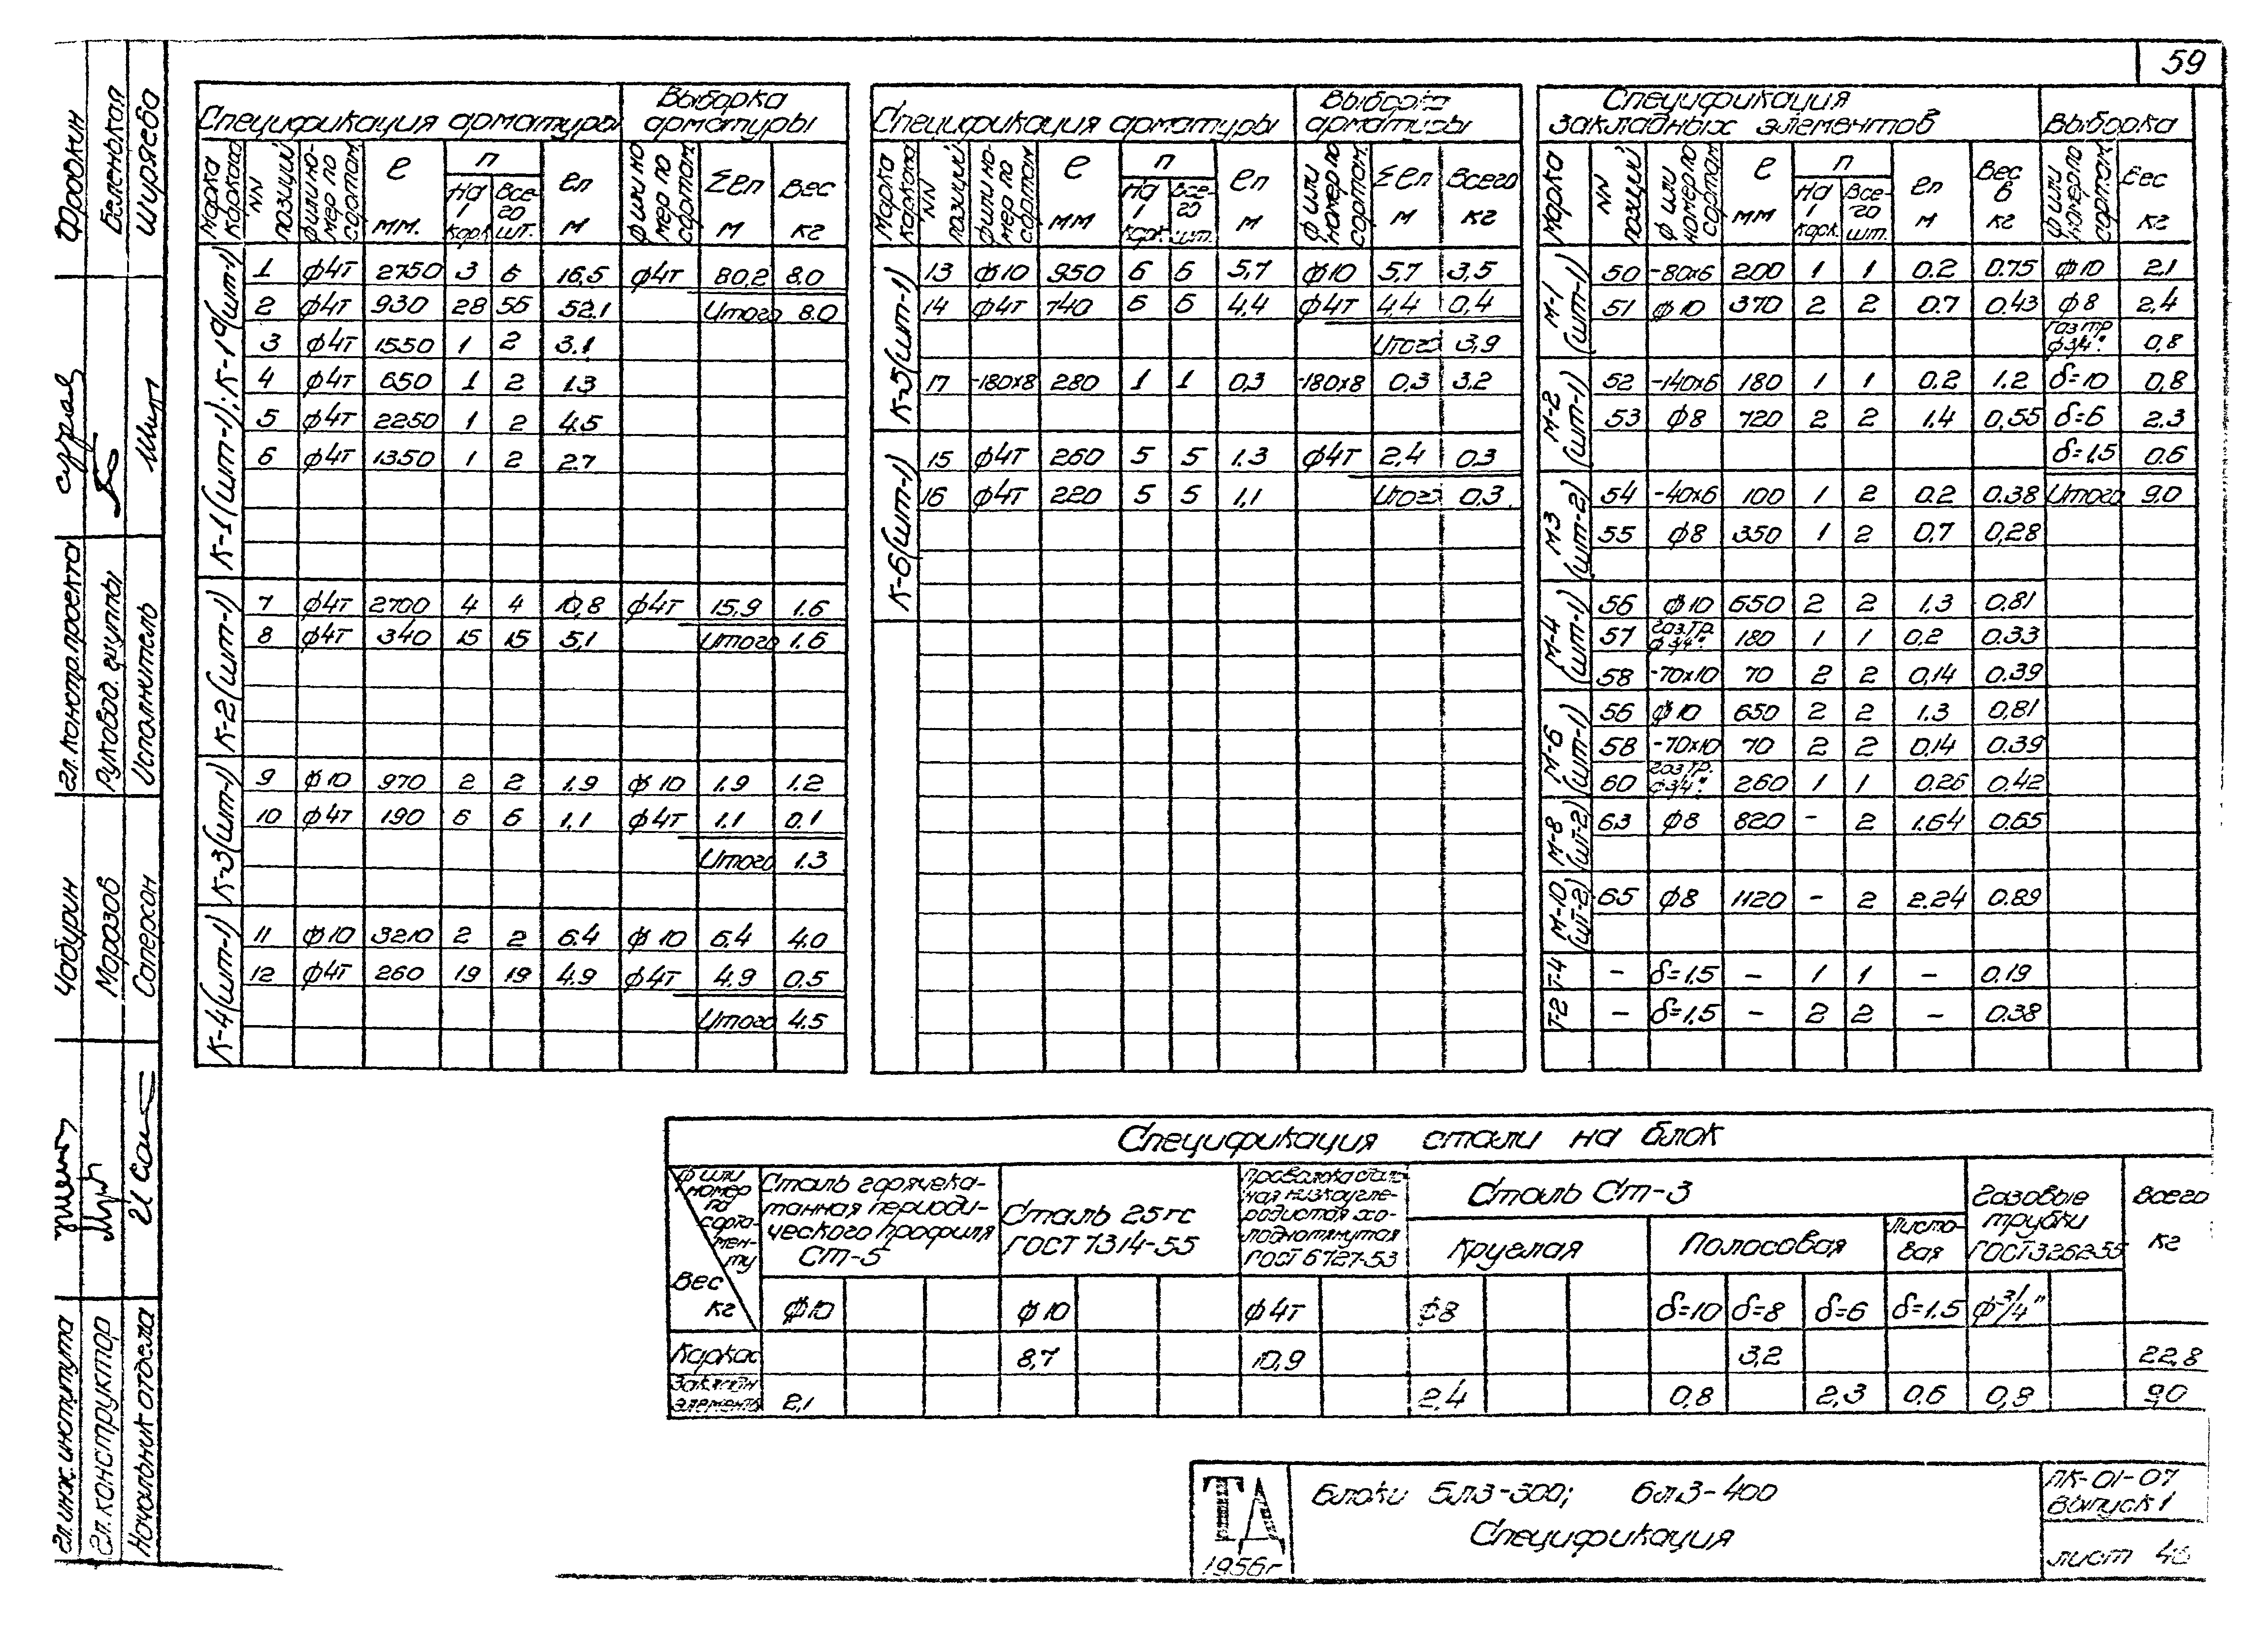 59
Спецификация арматуры
Выборка арматуры
Марка каркаса
NN позиций
ф или номер по сортам.
ℓ мм.
n
На 1 карк.
Всего шт.
ℓn м
ф или номер по сортам.
Σℓn м
Вес кг
К-1 (шт-1); К-1а (шт-1)
1 ф4т 2750 3 6 16,5 ф4т 80,2 8.0
2 ф4т 930 28 56 52.1 Итого 8.0
3 ф4т 1550 1 2 3.1
4 ф4т 650 1 2 1.3
5 ф4т 2250 1 2 4.5
6 ф4т 1350 1 2 2.7
К-2 (шт-1)
7 ф4т 2700 4 4 10,8 ф4т 15.9 1.6
8 ф4т 340 15 15 5,1 Итого 1.6
К-3 (шт-1)
9 ф10 970 2 2 1.9 ф10 1.9 1.2
10 ф4т 190 6 6 1.1 ф4т 1.1 0.1
Итого 1.3
К-4 (шт-1)
11 ф10 3210 2 2 6.4 ф10 6.4 4.0
12 ф4т 260 19 19 4.9 ф4т 4.9 0.5
Итого 4.5
Спецификация арматуры
Выборка арматуры
Марка каркаса
NN позиций
ф или номер по сортам.
ℓ мм
n
На 1 карк.
Всего шт.
ℓn м
ф или номер по сортам.
Σℓn м
Всего кг
К-5 (шт-1)
13 ф10 950 6 6 5,7 ф10 5,7 3,5
14 ф4т 740 6 6 4,4 ф4т 4,4 0,4
Итого 3,9
17 -180х8 280 1 1 0,3 -180х8 0,3 3.2
К-6 (шт-1)
15 ф4т 260 5 5 1.3 ф4т 2,4 0.3
16 ф4т 220 5 5 1,1 Итого 0.3
Спецификация закладных элементов
Выборка
Марка
NN позиций
ф или номер по сортам
ℓ мм
n
На 1 карк.
Всего шт.
ℓn м
Вес в кг
ф или номер по сортам.
Вес кг
М-1 (шт-1)
50 -80х6 200 1 1 0.2 0.75 ф10 2.1
51 ф10 370 2 2 0.7 0.43 ф8 2,4
Газ.тр ф3/4" 0,8
М-2 (шт-1)
52 -140х6 180 1 1 0.2 1.2 δ=10 0,8
53 ф8 720 2 2 1.4 0,55 δ=6 2.3
δ=1,5 0.6
М3 (шт-2)
54 -40х6 100 1 2 0.2 0.38 Итого 9.0
55 ф8 350 1 2 0.7 0,28
М-4 (шт-1)
56 ф10 650 2 2 1.3 0.81
57 газ.тр. ф3/4" 180 1 1 0.2 0.33
58 -70х10 70 2 2 0,14 0.39
М-6 (шт-1)
56 ф10 650 2 2 1.3 0,81
58 -70х10 70 2 2 0.14 0.39
60 газ.тр. ф3/4" 260 1 1 0.26 0.42
М-8 (шт-2)
63 ф8 820 - 2 1.64 0.65
М-10 (шт-2)
65 ф8 1120 - 2 2.24 0.89
Т-4 - δ=1.5 - 1 1 - 0.19
Т-2 - δ=1.5 - 2 2 - 0.38
Спецификация стали на блок
ф или номер по сортаменту
Вес кг
Сталь горячекатанная периодического профиля Ст-5
Сталь 25гс ГОСТ 7314-55
Проволока стальная низкоуглеродистая холоднотянутая ГОСТ 6727-53
Сталь Ст-3
Круглая
Полосовая
Листовая
Газовые трубки ГОСТ 3262-55
Всего кг
ф10 ф10 ф4т ф8 δ=10 δ=8 δ=6 δ=1.5 ф3/4"
Каркас 8,7 10,9 3,2 22,8
Закладн элементы 2,1 2,4 0,8 2,3 0,6 0,8 9,0
ТД
1956г
Блоки БЛ3-300; БЛ3-400
Спецификация
ПК-01-07
Выпуск 1
лист 46
Гл. инж. института
Гл. конструктор
Начальник отдела
Чабурин
Морозов
Сатерсон
Гл. констр. проекта
Руковод. группы
Исполнитель
Фродкин
Беленькая
Ширяева